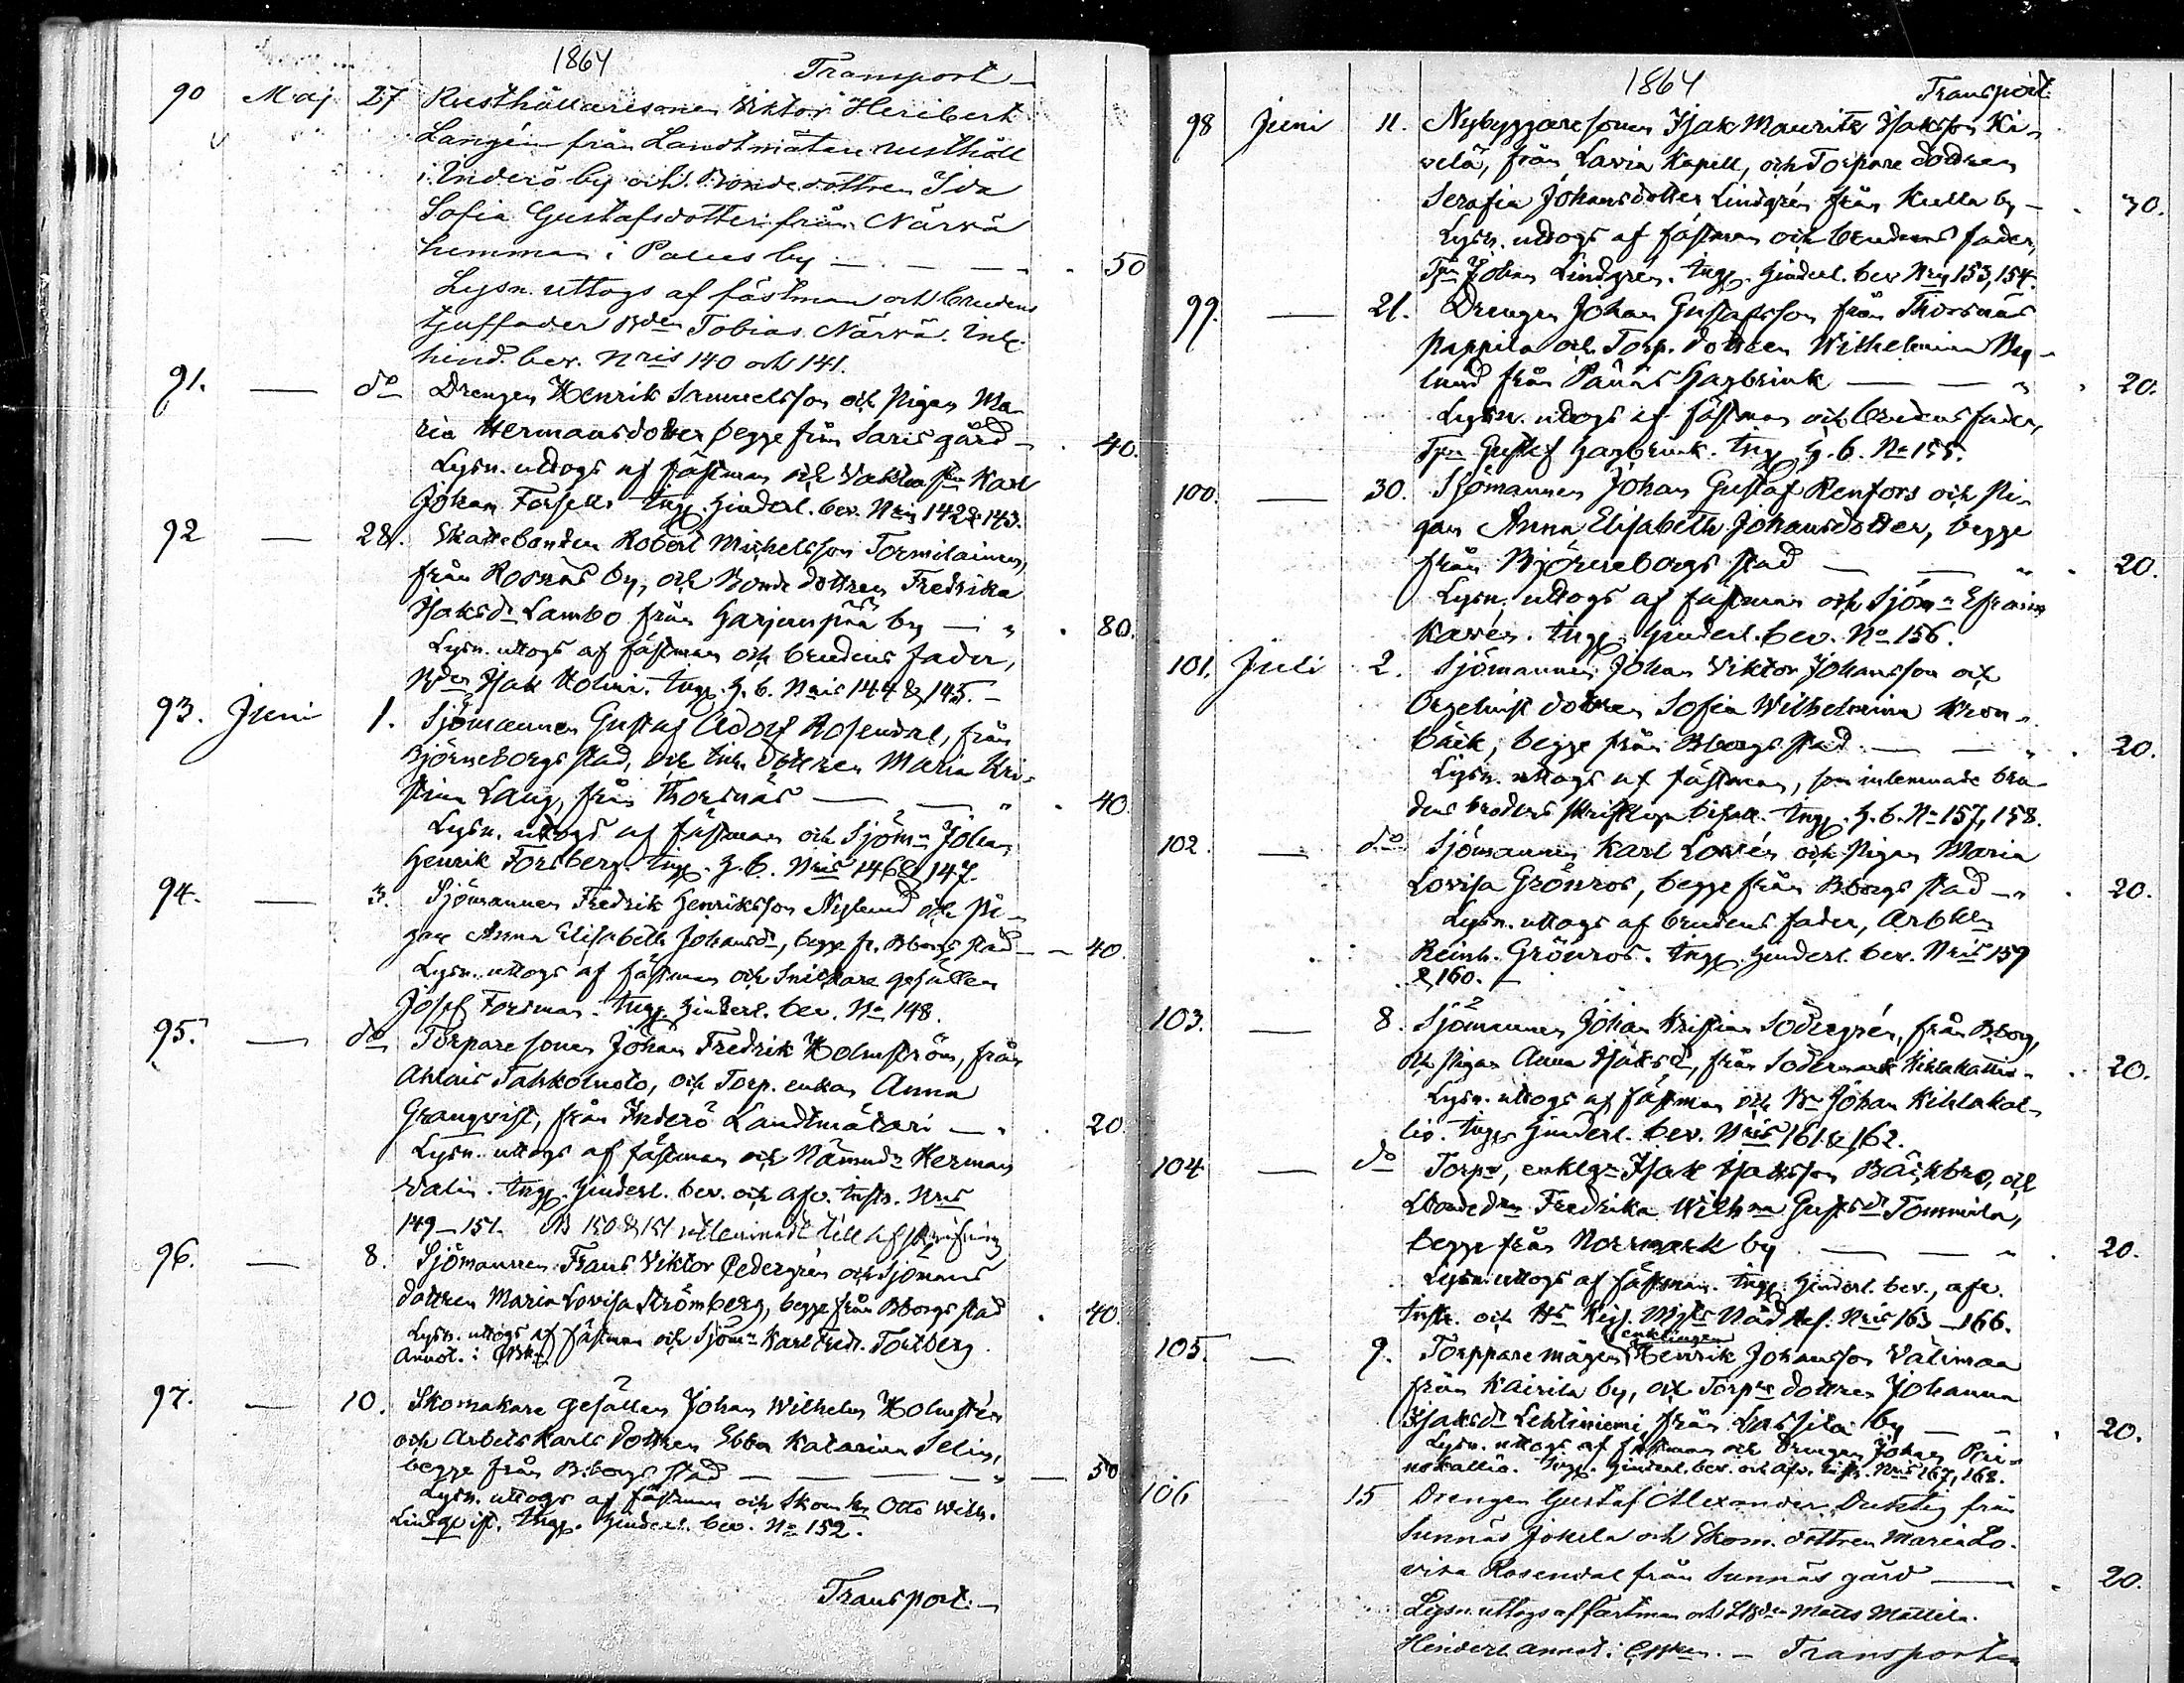 1864 Transport
90 Maj 27 Rusthållaresonen Viktor Heribert
Langén från Landtmätare rusthåll
i Inderö by och Bondedottren Ida
Sofia Gustafsdotter från Närvä
hemman i Paues by — — — 50
Lysn. uttogs af fästman och brudens
tjuffader Bden Tobias Närvä. Inl.
hind. bev. Nris 140 och 141.
91. — do Drengen Henrik Samuelsson och Pigan Ma-
ria Hermansdotter begge från Saris gård — 40.
Lysn. uttogs af fästman och Karl
Johan Forsell. Ingg. hinderl. bev. Nris 142 & 143.
92 — 28. Skattebonden Robert Michelsson Tormilainen,
från Rosnäs by, och Bonde dottren Fredrika
Isaksdr Lambo från Harjunpää by — " 80.
Lysn. uttogs af fästman och brudens fader,
Bden Isak Holmi. Ingg. H. b. Nris 144 & 145. —
93. Juni 1. Sjömannen Gustaf Adolf Rosendal, från
Björneborgs stad, och dottren Maria Kri-
stina Lang, från Thorsnäs — — " 40.
Lysn. uttogs af fästman och Sjömn Johan
Henrik Forsberg. Ingg. H. b. Nris 146 & 147.
94. — 3. Sjömannen Fredrik Henriksson Nylund och Pi-
gan Anna Elisabeth Johansdr, begge fr. Bborgs stad — 40.
Lysn. uttogs af fästman och Snickare gesällen
Josef Forsman. Ingg. hinderl. bev. No 148.
95. — do Torpare sonen Johan Fredrik Holmström, från
Ahlais Tahkoluoto, och Torp. enkan Anna
Granqvist, från Inderö Landtmätari — " 20.
Lysn. uttogs af fästman och Nämndn Herman
Valin. Ingg. hinderl. bev. och afv. instr. Nris
149—151. NB 150 & 151 utlemnade till afskrifning
96. — 8. Sjömannen Frans Viktor Cedergrén och Sjömans
dottren Maria Lovisa Strömberg, begge från Bborgs stad 40.
Lysn. uttogs af fästman och Sjömn Karl Fredr. Fortberg.
Annot. i
97. — 10. Skomakare gesällen Johan Wilhelm Holmstén
och Arbets karls dottren Ebba Katarina Selin,
begge från B.borgs stad — — — " — 50
Lysn. uttogs af fästman och Skom. Otto Wilh.
Lindqvist. Ingg. hinderl. bev. No 152.
Transport. —
1864 Transport.
98 Juni 11. Nybyggaresonen Isak Mauritz Isaksson Ki-
velä, från Lavia Kapell, och Torpare dottren
Serafia Johansdotter Lindgrén från Kulla by — 30.
Lysn. uttogs af fästman och brudens fader,
Tpn Johan Lindgrén. Ingg. hinderl. bev Nris 153, 154.
99. — 21. Drengen Johan Gustafsson från Thorsnäs
Pappila och Torp. dottren Wilhelmina Ny-
lund från Hagbrink — — " 20.
Lysn. uttogs af fästman och brudens fader,
Tpn Gustaf Hagbrink. Ingg. H. b. No 155.
100. — 30. Sjömannen Johan Gustaf Renfors och Pi-
gan Anna Elisabeth Johansdotter, begge
från Björneborgs stad — — " 20.
Lysn. uttogs af fästman och Sjömn Efraim
Kavén. Ingg. hinderl. bev. No 156.
101. Juli 2. Sjömannen Johan Viktor Johansson och
Orgelnist dottren Sofia Wilhelmina Kron-
bäck, begge från Bborgs stad — — " 20.
Lysn. uttogs af fästman, som inlemnade bru-
dens broders skriftliga bifall. Ingg. H. b. No 157, 158.
102. — do Sjömannen Karl Lovén och Pigan Maria
Lovisa Grönros, begge från Bborgs stad — " 20.
Lysn. uttogs af brudens fader, Arbkln
Reinh. Grönros. Ingg. hinderl. bev. Nris 159
& 160. —
103. — 8. Sjömannen Johan Kristian Södergrén, från Bborg,
och Pigan Anna Isaksdr, från Södermark Kihlakallio 20.
Lysn. uttogs af fästman och Bn Johan Kihlakal-
lio. Inggs hinderl. bev. Nris 161 & 162.
104 — do Torpn, enklgn Isak Isaksson Bäckbro, och
Bondedrn Fredrika Wilhna Gustsdr Tommila,
begge från Norrmark by — — " 20.
Lysn. uttogs af fästman. Ingg. hinderl. bev., afv.
instr. och Hs Kejs. Myts Nåd. Nris 163—166.
105. — 9. Torppare mågen enklingen Henrik Johansson Välimaa
från Kairila by, och Torpns dottren Johanna
Isaksdr Lehtiniemi från Lassila by — " 20.
Lysn. uttogs af fästman och Drengen Johan Rai-
nokallio. Ingg. hinderl. bev. och afv. instr. Nris 167, 168.
106 15 Drengen Gustaf Alexander från
Sunnäs Jokela och Skom. dottren Maria Lo-
visa Rosendal från Sunnäs gård — 20.
Lysn. uttogs af fästman och Bden Matts Mattila.
Hinderl. annot. i — Transport